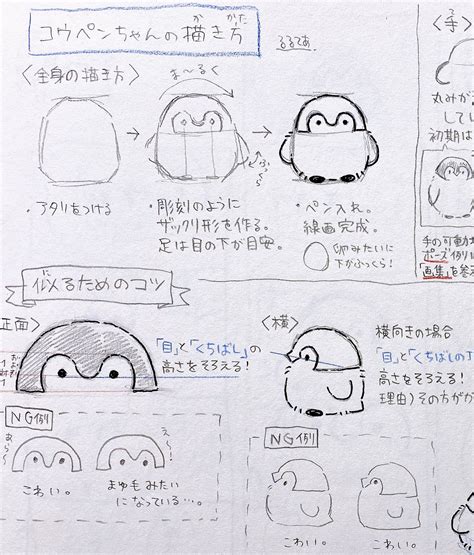 コウペンちゃんの描き方
か
かた
るるてあ
〈全身の描き方〉
ま〜るく
ふっくら
・アタリをつける
・彫刻のように
ザックリ形を作る。
足は目の下が目安。
・ペン入れ。
線画完成。
卵みたいに
下がふっくら!
〈手〉
て
丸みが
してし
初期は
手の可動
ポーズ例
「画集」を参
似るためのコツ
に
正面〉
「目」と「くちばし」の
高さをそろえる!
NG例
あら〜
え〜!
こわい。
まゆ毛みたい
になっている…。
〈横〉
横向きの場合
「目」と「くちばしの
高さをそろえる!
理由)その方が
NG例
こわい。
こわい。